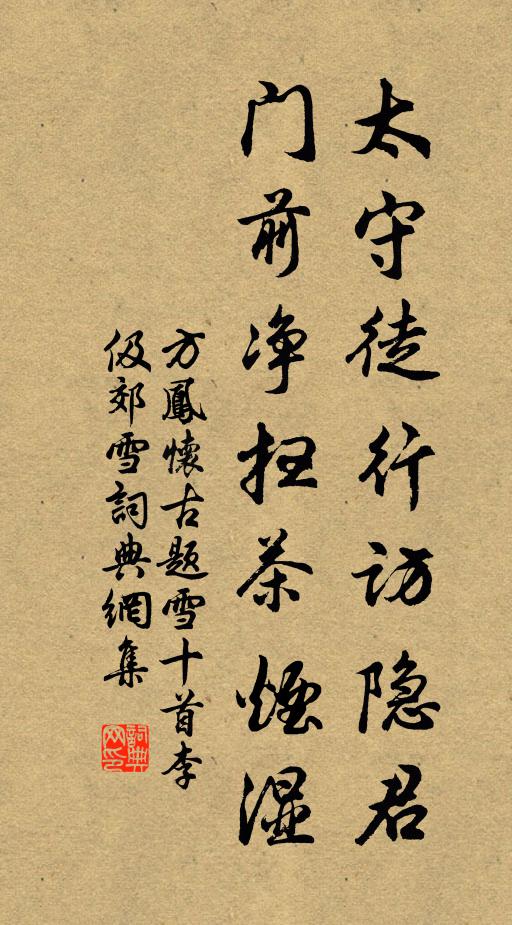 太守徒行訪隐君
門前净扫茶煙湿
方鳳懷古題雪十首李
伋郊雪詞典網集
詞典网印